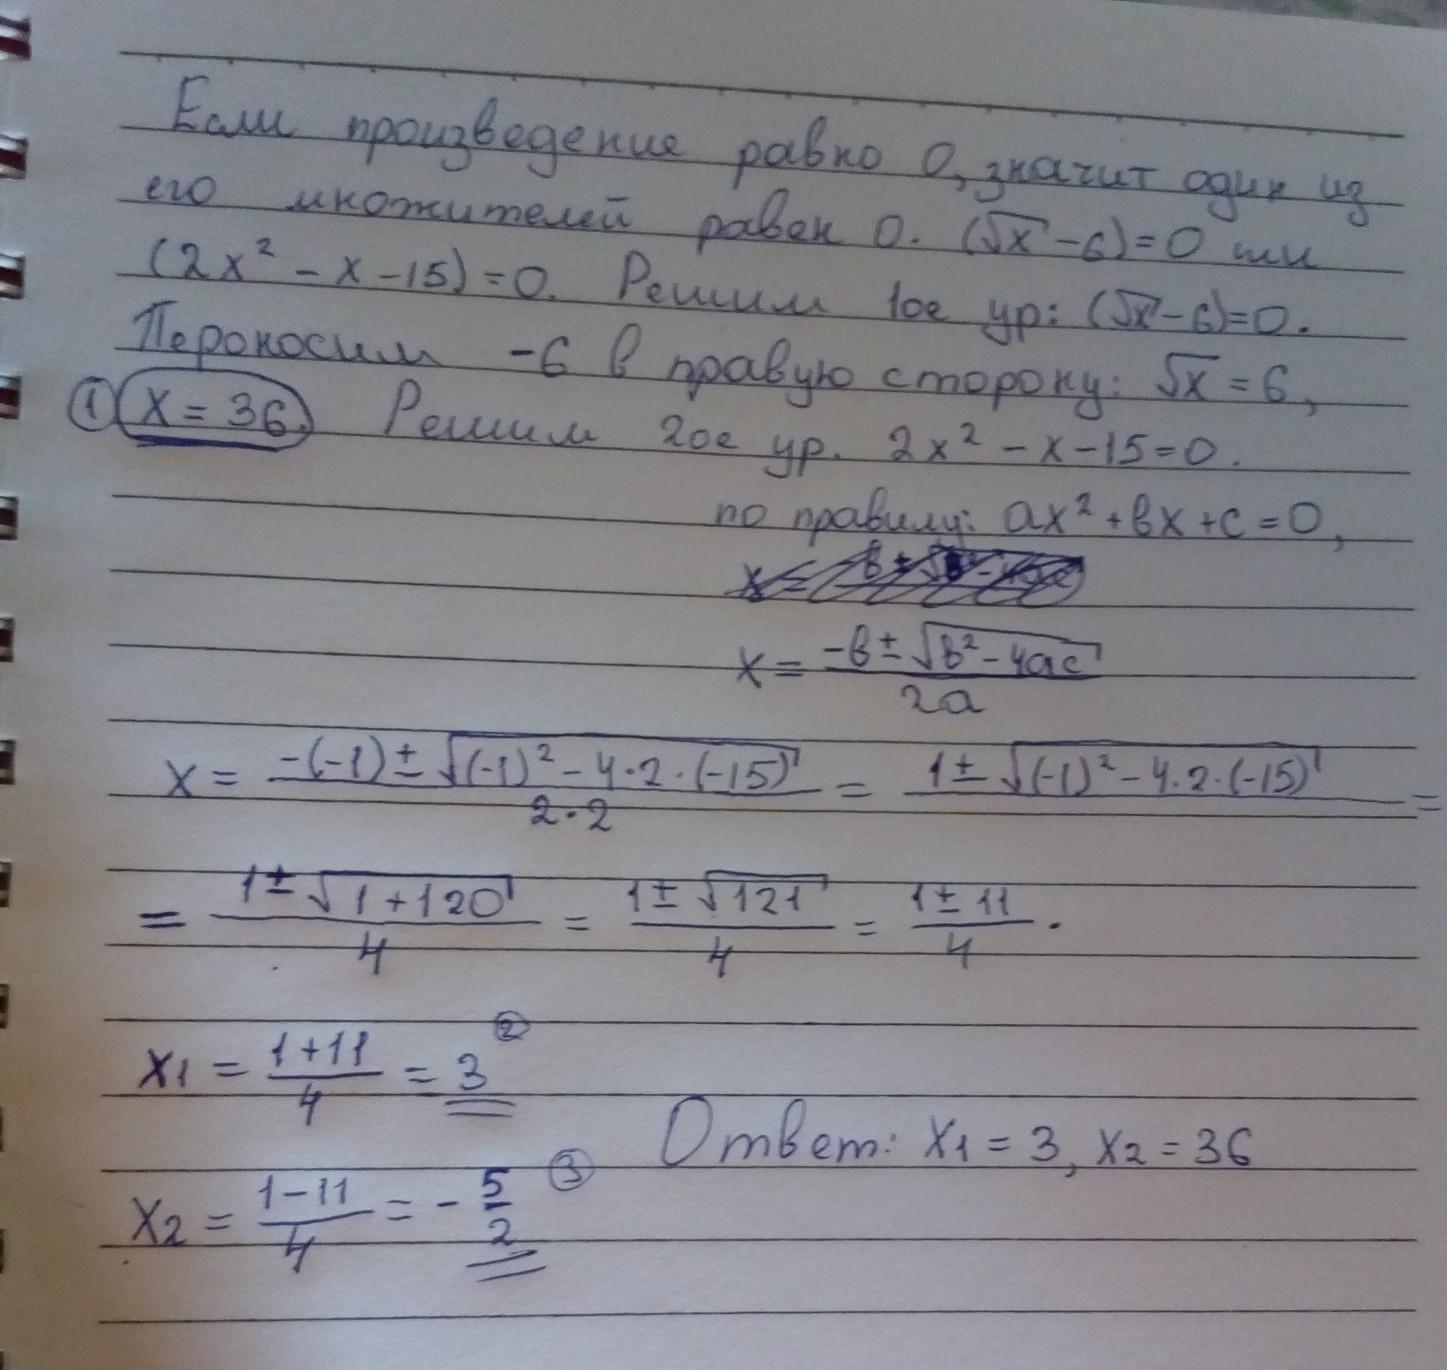 Если произведение равно 0, значит один из
его множителей равен 0. (√x - 6) = 0 или
(2x² - x - 15) = 0. Решим 1ое ур: (√x - 6) = 0.
Пероносим -6 в правую сторону: √x = 6,
① x = 36. Решим 2ое ур. 2x² - x - 15 = 0.
по правилу: ax² + bx + c = 0,
x = (-b ± √(b² - 4ac)) / 2a
x = (-(-1) ± √((-1)² - 4·2·(-15))) / 2·2 = 1 ± √((-1)² - 4·2·(-15)) =
= (1 ± √(1 + 120)) / 4 = (1 ± √121) / 4 = (1 ± 11) / 4.
x1 = (1 + 11) / 4 = 3 ②
Ответ: x1 = 3, x2 = 36
x2 = (1 - 11) / 4 = - 5/2 ③